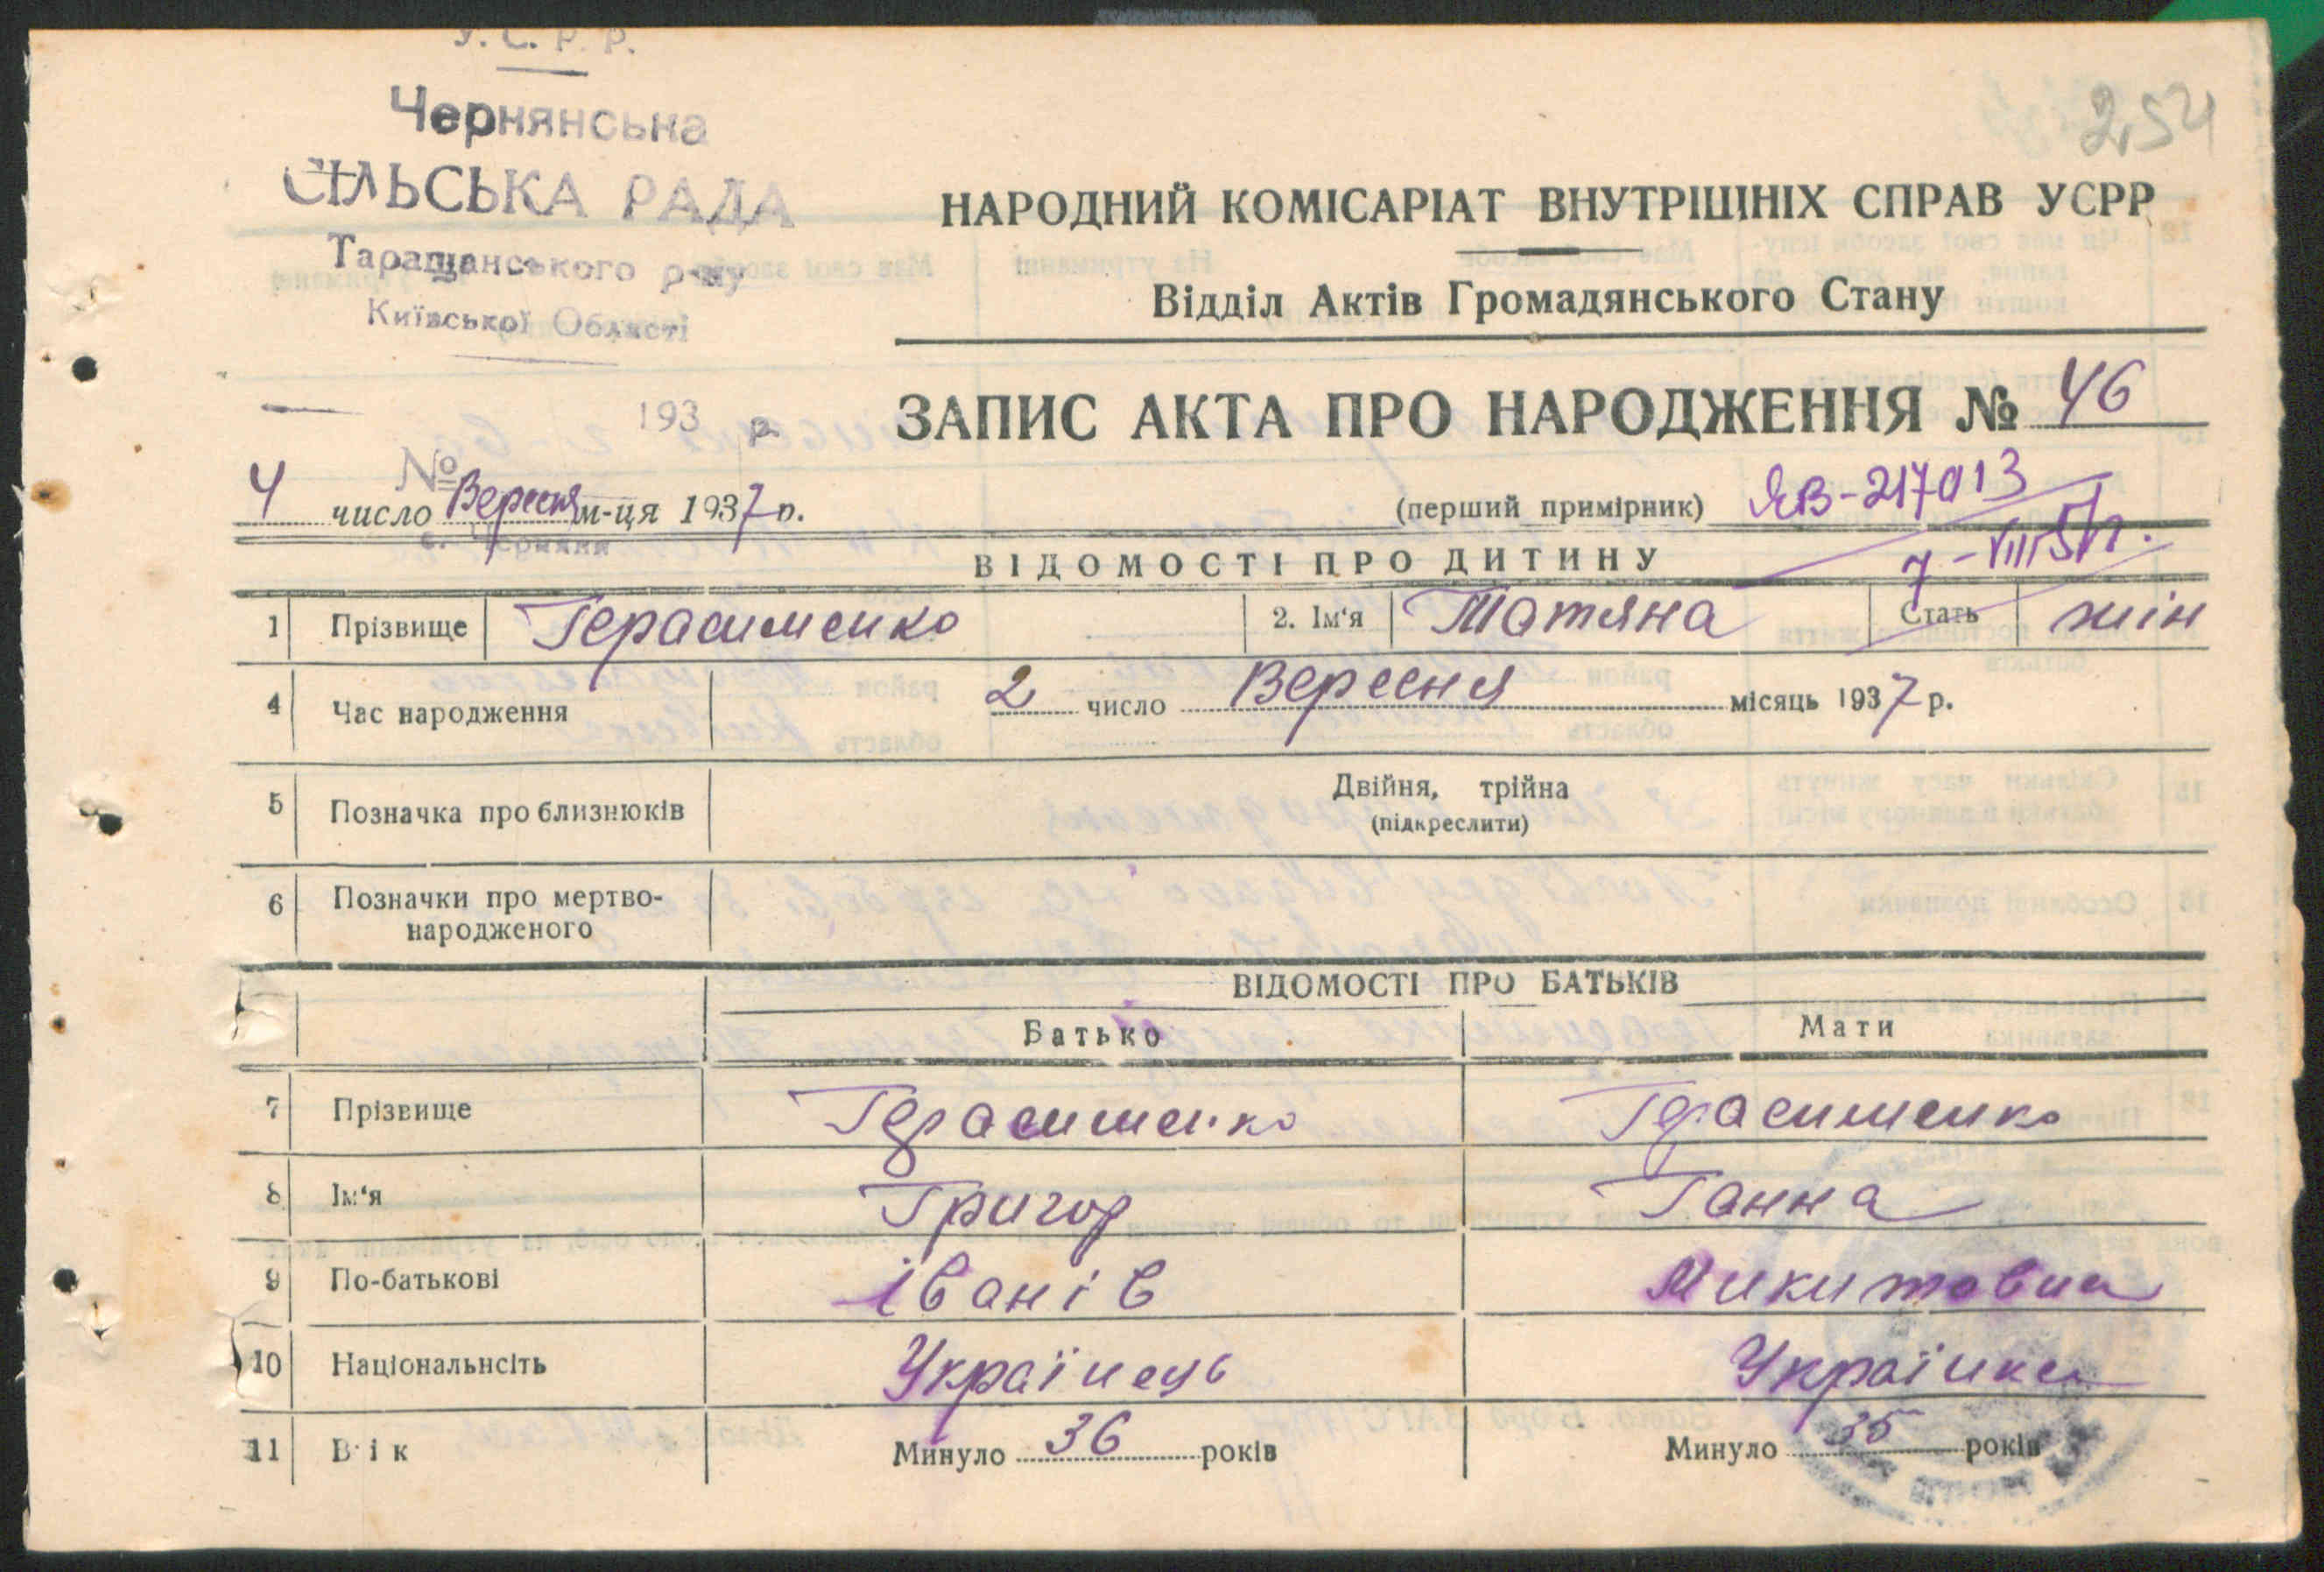 У. С. Р. Р.
Чернянська
СІЛЬСЬКА РАДА
Таращанського р-ну
Київської Області
193 р.
№
с. Черняки
254
НАРОДНИЙ КОМІСАРІАТ ВНУТРІШНІХ СПРАВ УСРР
Відділ Актів Громадянського Стану
ЗАПИС АКТА ПРО НАРОДЖЕННЯ № 46
4 число Вересня м-ця 1937 р.
(перший примірник) ЯВ-217013
7-VIII 51 г.
ВІДОМОСТІ ПРО ДИТИНУ
1 Прізвище Герасименко 2. Ім'я Татяна Стать жін
4 Час народження 2 число Вересня місяць 1937 р.
5 Позначка про близнюків Двійня, трійна
(підкреслити)
6 Позначки про мертво-
народженого
ВІДОМОСТІ ПРО БАТЬКІВ
Батько Мати
7 Прізвище Герасименко Герасименко
8 Ім'я Григор Ганна
9 По-батькові Іванів Микитовна
10 Національнсіть Українець Українка
11 Вік Минуло 36 років Минуло 35 років